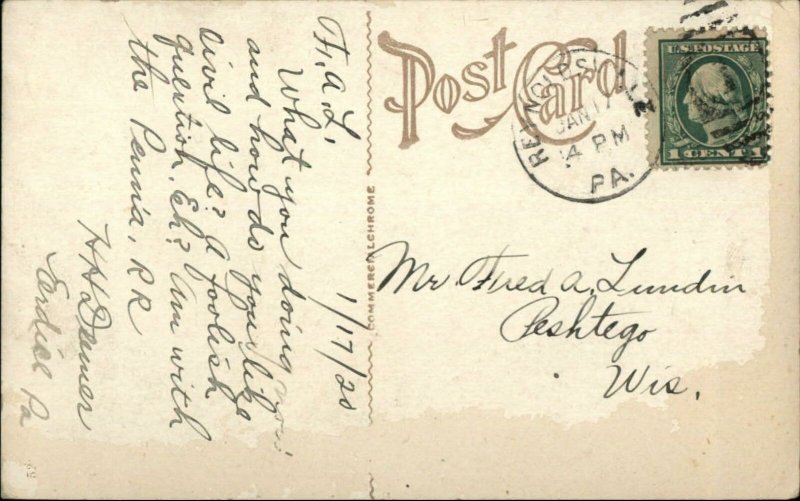 1/17/20
F. A. L.
What you doing now
and how do you like
civil life? A foolish
question. Eh? Am with
the Penna. R R
H H Damer
Pa
COMMERCIALCHROME
Post Card
JAN 17
4 PM
PA.
U.S. POSTAGE
1 CENT 1
Mr Fred A. Lundin
Peshtego
Wis.